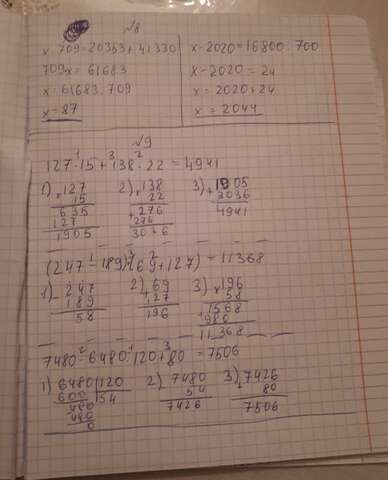 №8
x·709=20353+41330
709x=61683
x=61683:709
x=87
x-2020=16800:700
x-2020=24
x=2020+24
x=2044
№9
127·15+138·22=4941
1) 127
x 15
635
127
1905
2) 138
x 22
276
276
3036
3) 1905
+ 3036
4941
(247-189)·(69+127)=11368
1) 247
- 189
58
2) 69
+ 127
196
3) 196
x 58
1568
+ 980
11368
7480-6480:120+80=7506
1) 6480 120
600 54
480
480
0
2) 7480
- 54
7426
3) 7426
+ 80
7506